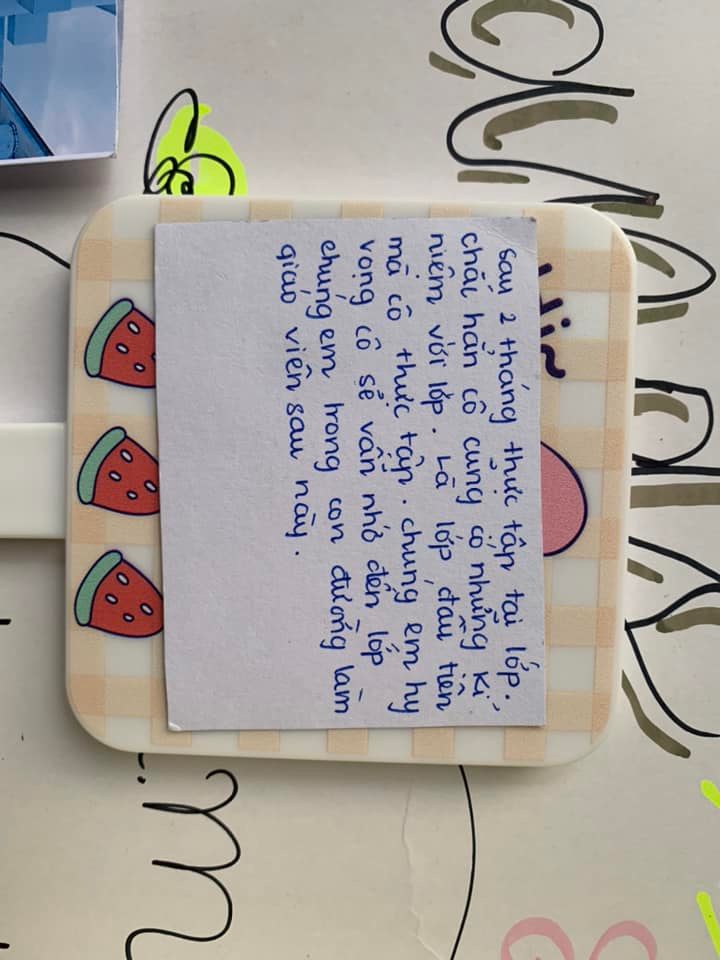 Sau 2 tháng thực tập tại lớp.
chắc hẳn cô cũng có những kỉ
niệm với lớp. Là lớp đầu tiên
mà cô thực tập. chúng em hy
vọng cô sẽ vẫn nhớ đến lớp
chúng em trong con đường làm
giáo viên sau này.